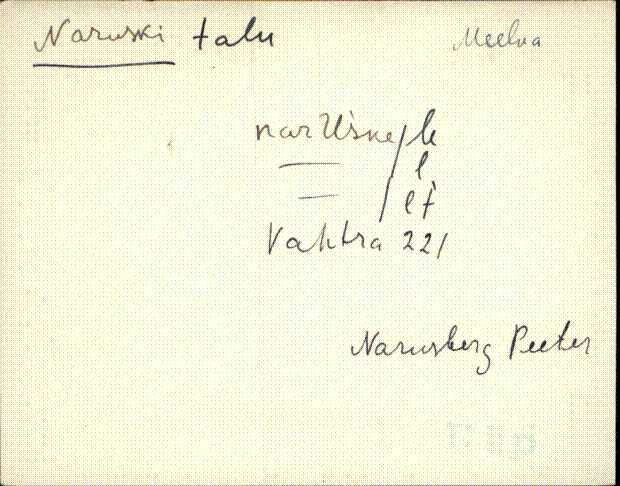 Naruski talu Meelva
naruśke/le
— / l
— / lt
Vahtra 221
Narusberg Peeter